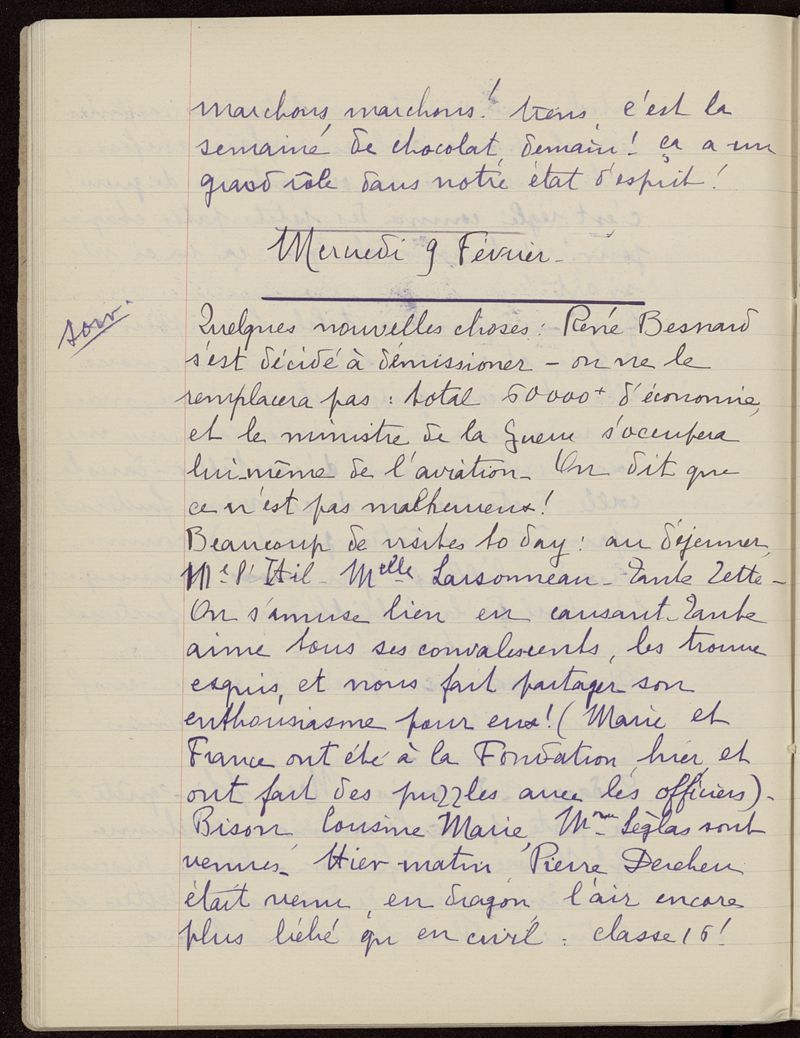 marchons, marchons! tiens, c'est la
semaine de chocolat, demain! ça a un
grand rôle dans notre état d'esprit!
Mercredi 9 Février.
soir.
Quelques nouvelles choses: René Besnard
s'est décidé à démissioner – on ne le
remplacera pas: total 50000+ d'économie,
et le ministre de la Guerre s'occupera
lui-même de l'aviation. On dit que
ce n'est pas malheureux!
Beaucoup de visites to day: au déjeuner,
Melle Larsonneau – Tante Zette –
On s'amuse bien en causant. Tante
aime tous ses convalescents, les trouve
exquis, et nous fait partager son
enthousiasme pour eux! (Marie et
France ont été à la Fondation, hier, et
ont fait des puzzles avec les officiers).
Bison, Cousine Marie, Mme Séglas sont
venues. Hier matin, Pierre
était venu, en dragon, l'air encore
plus bébé qu'en civil: classe 16!